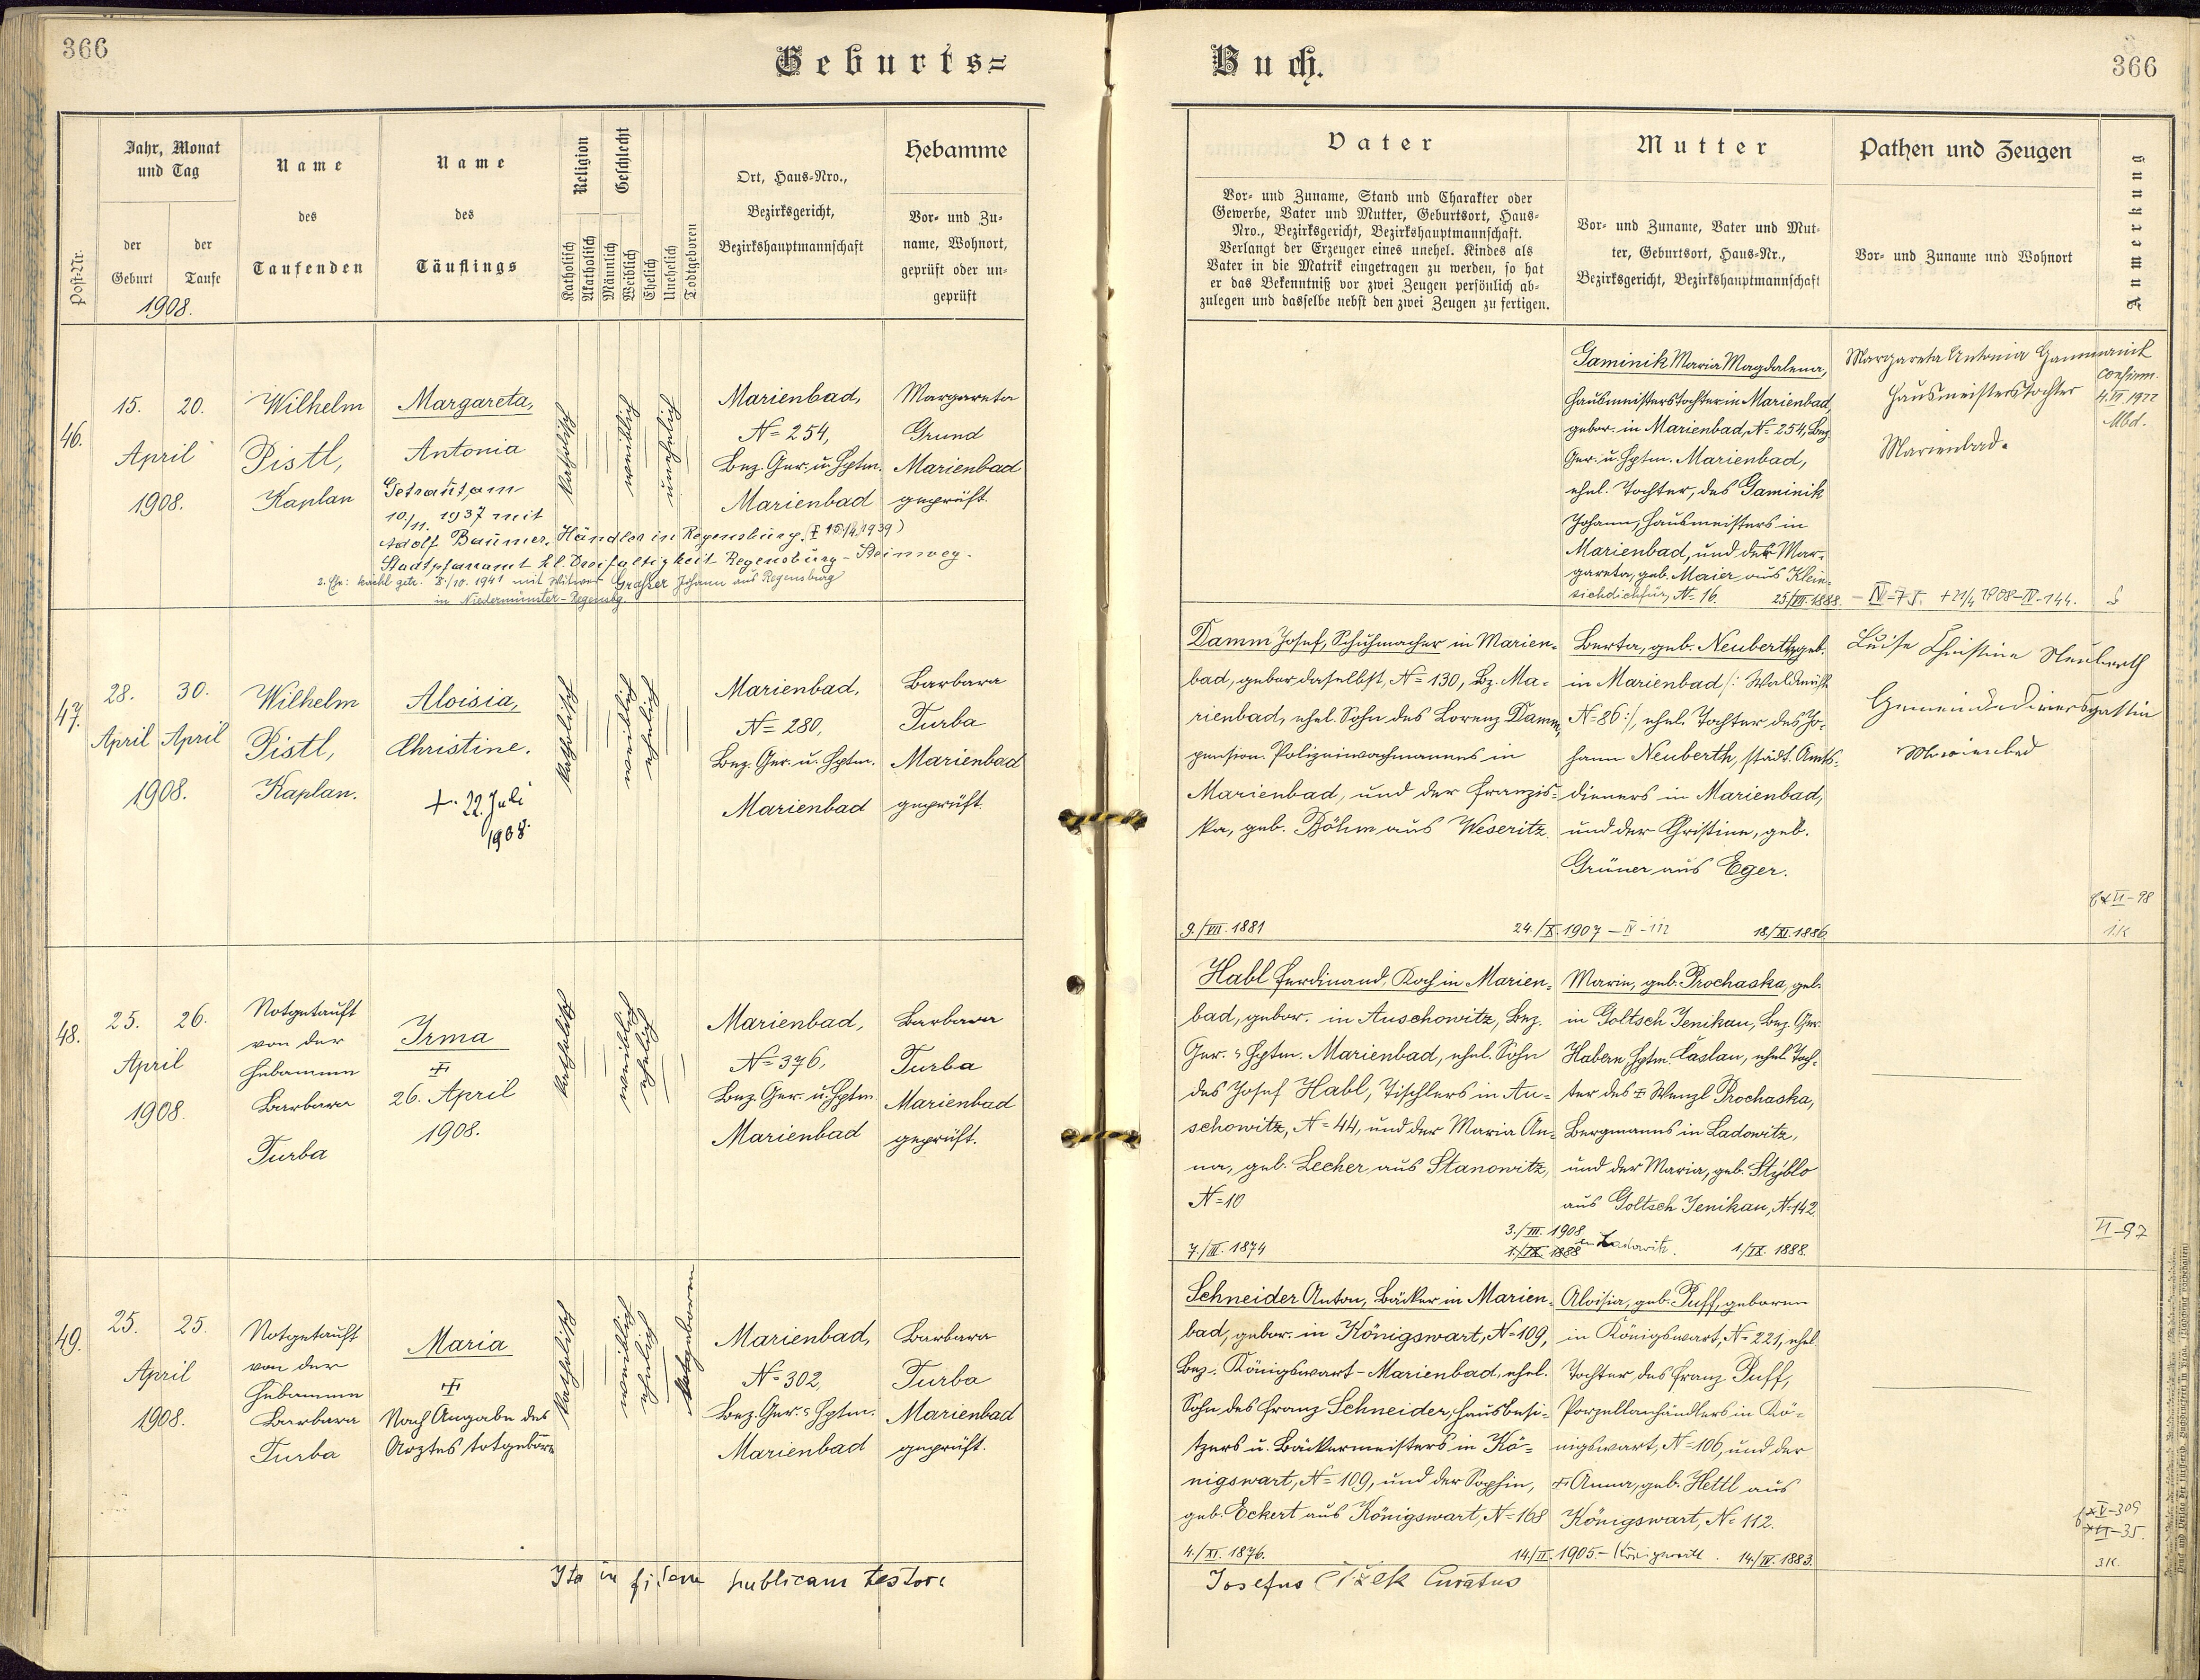 366
Geburts=
Buch.
366
Post-Nr.
Jahr, Monat
und Tag
der
Geburt
der
Taufe
1908.
Name
des
Taufenden
Name
des
Täuflings
Religion
Katholisch
Akatholisch
Geschlecht
Männlich
Weiblich
Ehelich
Unehelich
Todtgeboren
Ort, Haus-Nro.,
Bezirksgericht,
Bezirkshauptmannschaft
Hebamme
Vor- und Zu-
name, Wohnort,
geprüft oder un-
geprüft
Vater
Vor- und Zuname, Stand und Charakter oder
Gewerbe, Vater und Mutter, Geburtsort, Haus-
Nro., Bezirksgericht, Bezirkshauptmannschaft.
Verlangt der Erzeuger eines unehel. Kindes als
Vater in die Matrik eingetragen zu werden, so hat
er das Bekenntniß vor zwei Zeugen persönlich ab-
zulegen und dasselbe nebst den zwei Zeugen zu fertigen.
Mutter
Vor- und Zuname, Vater und Mut-
ter, Geburtsort, Haus-Nr.,
Bezirksgericht, Bezirkshauptmannschaft
Pathen und Zeugen
Vor- und Zuname und Wohnort
Anmerkung
46.
15. 20.
April
1908.
Wilhelm
Pistl,
Kaplan
Margareta,
Antonia
Getraut am
10/11. 1937 mit
Adolf Baumer, Händler in Regensburg. (‡ 15/4 1939)
Stadtpfarramt hl. Dreifaltigkeit Regensburg-Steinweg.
2. Ehe: kirchl. getr. 8./10. 1941 mit Witwer Graßer Johann aus Regensburg
in Niedermünster-Regensbg.
katholisch
weiblich
unehelich
Marienbad,
N= 254,
Bez. Ger. u. Hptm.
Marienbad
Margareta
Grund
Marienbad
geprüft.
Gaminik Maria Magdalena,
Hausmeisterstochter in Marienbad,
gebor. in Marienbad, N= 254, Bez.
Ger. u. Hptm. Marienbad,
ehel. Tochter, des Gaminik
Johann, Hausmeisters in
Marienbad, und der Mar-
gareta, geb. Maier aus Klein-
siehdichfür, N= 16. 25/VII. 1888.
Margareta Antonia
Hausmeisterstochter
Marienbad.
confirm.
4. VI. 1922
Mbd.
IV-75. + 21/4 1908-IV-144.
47.
28. 30.
April April
1908.
Wilhelm
Pistl,
Kaplan.
Aloisia,
Christine.
+. 22. Juli
1908.
katholisch
weiblich
ehelich
Marienbad,
N= 280,
Bez. Ger. u. Hptm.
Marienbad
Barbara
Turba
Marienbad
geprüft.
Damm Josef, Schuhmacher in Marien-
bad, gebor. daselbst, N= 130, Bz. Ma-
rienbad, ehel. Sohn des Lorenz Damm,
pension. Polizeiwachmannes in
Marienbad, und der Franzis-
ka, geb. Böhm aus Weseritz.
9./VII. 1881
24./X. 1907 – IV-112
Berta, geb. Neuberth, geb.
in Marienbad /: Waldmühle
N= 86 :/, ehel. Tochter des Jo-
hann Neuberth, städt. Amts-
dieners in Marienbad,
und der Christine, geb.
Grüner aus Eger.
18./XI. 1886
Luise Christine Neuberth
Gemeindedienersgattin
Marienbad
II-98
1.K
48.
25. 26.
April
1908.
Notgetauft
von der
Hebamme
Barbara
Turba
Irma
‡
26. April
1908.
katholisch
weiblich
ehelich
Marienbad,
N= 376,
Bez. Ger. u. Hptm.
Marienbad
Barbara
Turba
Marienbad
geprüft.
Habl Ferdinand, Koch in Marien-
bad, gebor. in Auschowitz, Bez.
Ger. u. Hptm. Marienbad, ehel. Sohn
des Josef Habl, Tischlers in Au-
schowitz, N= 44, und der Maria An-
na, geb. Lecher aus Stanowitz,
N= 10
7./III. 1874
3./III. 1908
1./IX. 1888 in Ladowitz.
Marie, geb. Prochaska, geb.
in Goltsch Jenikau, Bez. Ger.
Habern, Hptm. Časlau, ehel. Toch-
ter des ‡ Wenzl Prochaska,
Bergmanns in Ladowitz,
und der Maria, geb. Stýblo
aus Goltsch Jenikau, N= 142.
1/IX. 1888.
II-97
49.
25. 25.
April
1908.
Notgetauft
von der
Hebamme
Barbara
Turba
Maria
‡
Nach Angabe des
Arztes totgeboren
katholisch
weiblich
ehelich
totgeboren
Marienbad,
N= 302,
Bez. Ger. u. Hptm.
Marienbad
Barbara
Turba
Marienbad
geprüft.
Schneider Anton, Bäcker in Marien-
bad, gebor. in Königswart, N= 109,
Bez. Königswart-Marienbad, ehel.
Sohn des Franz Schneider, Hausbesi-
tzers u. Bäckermeisters in Kö-
nigswart, N= 109, und der Sophie,
geb. Eckert aus Königswart, N= 168
4./XI. 1876.
14./II. 1905.- Königswart.
Aloisia, geb. Puff, geboren
in Königswart, N= 221, ehel.
Tochter des Franz Puff,
Porzellanhändlers in Kö-
nigswart, N= 106, und der
‡ Anna, geb. Hettl aus
Königswart, N= 112.
14./IV. 1883.
V-309
VI-35.
3K.
Ita in fidem publicam testor:
Josefus Čížek Curatus